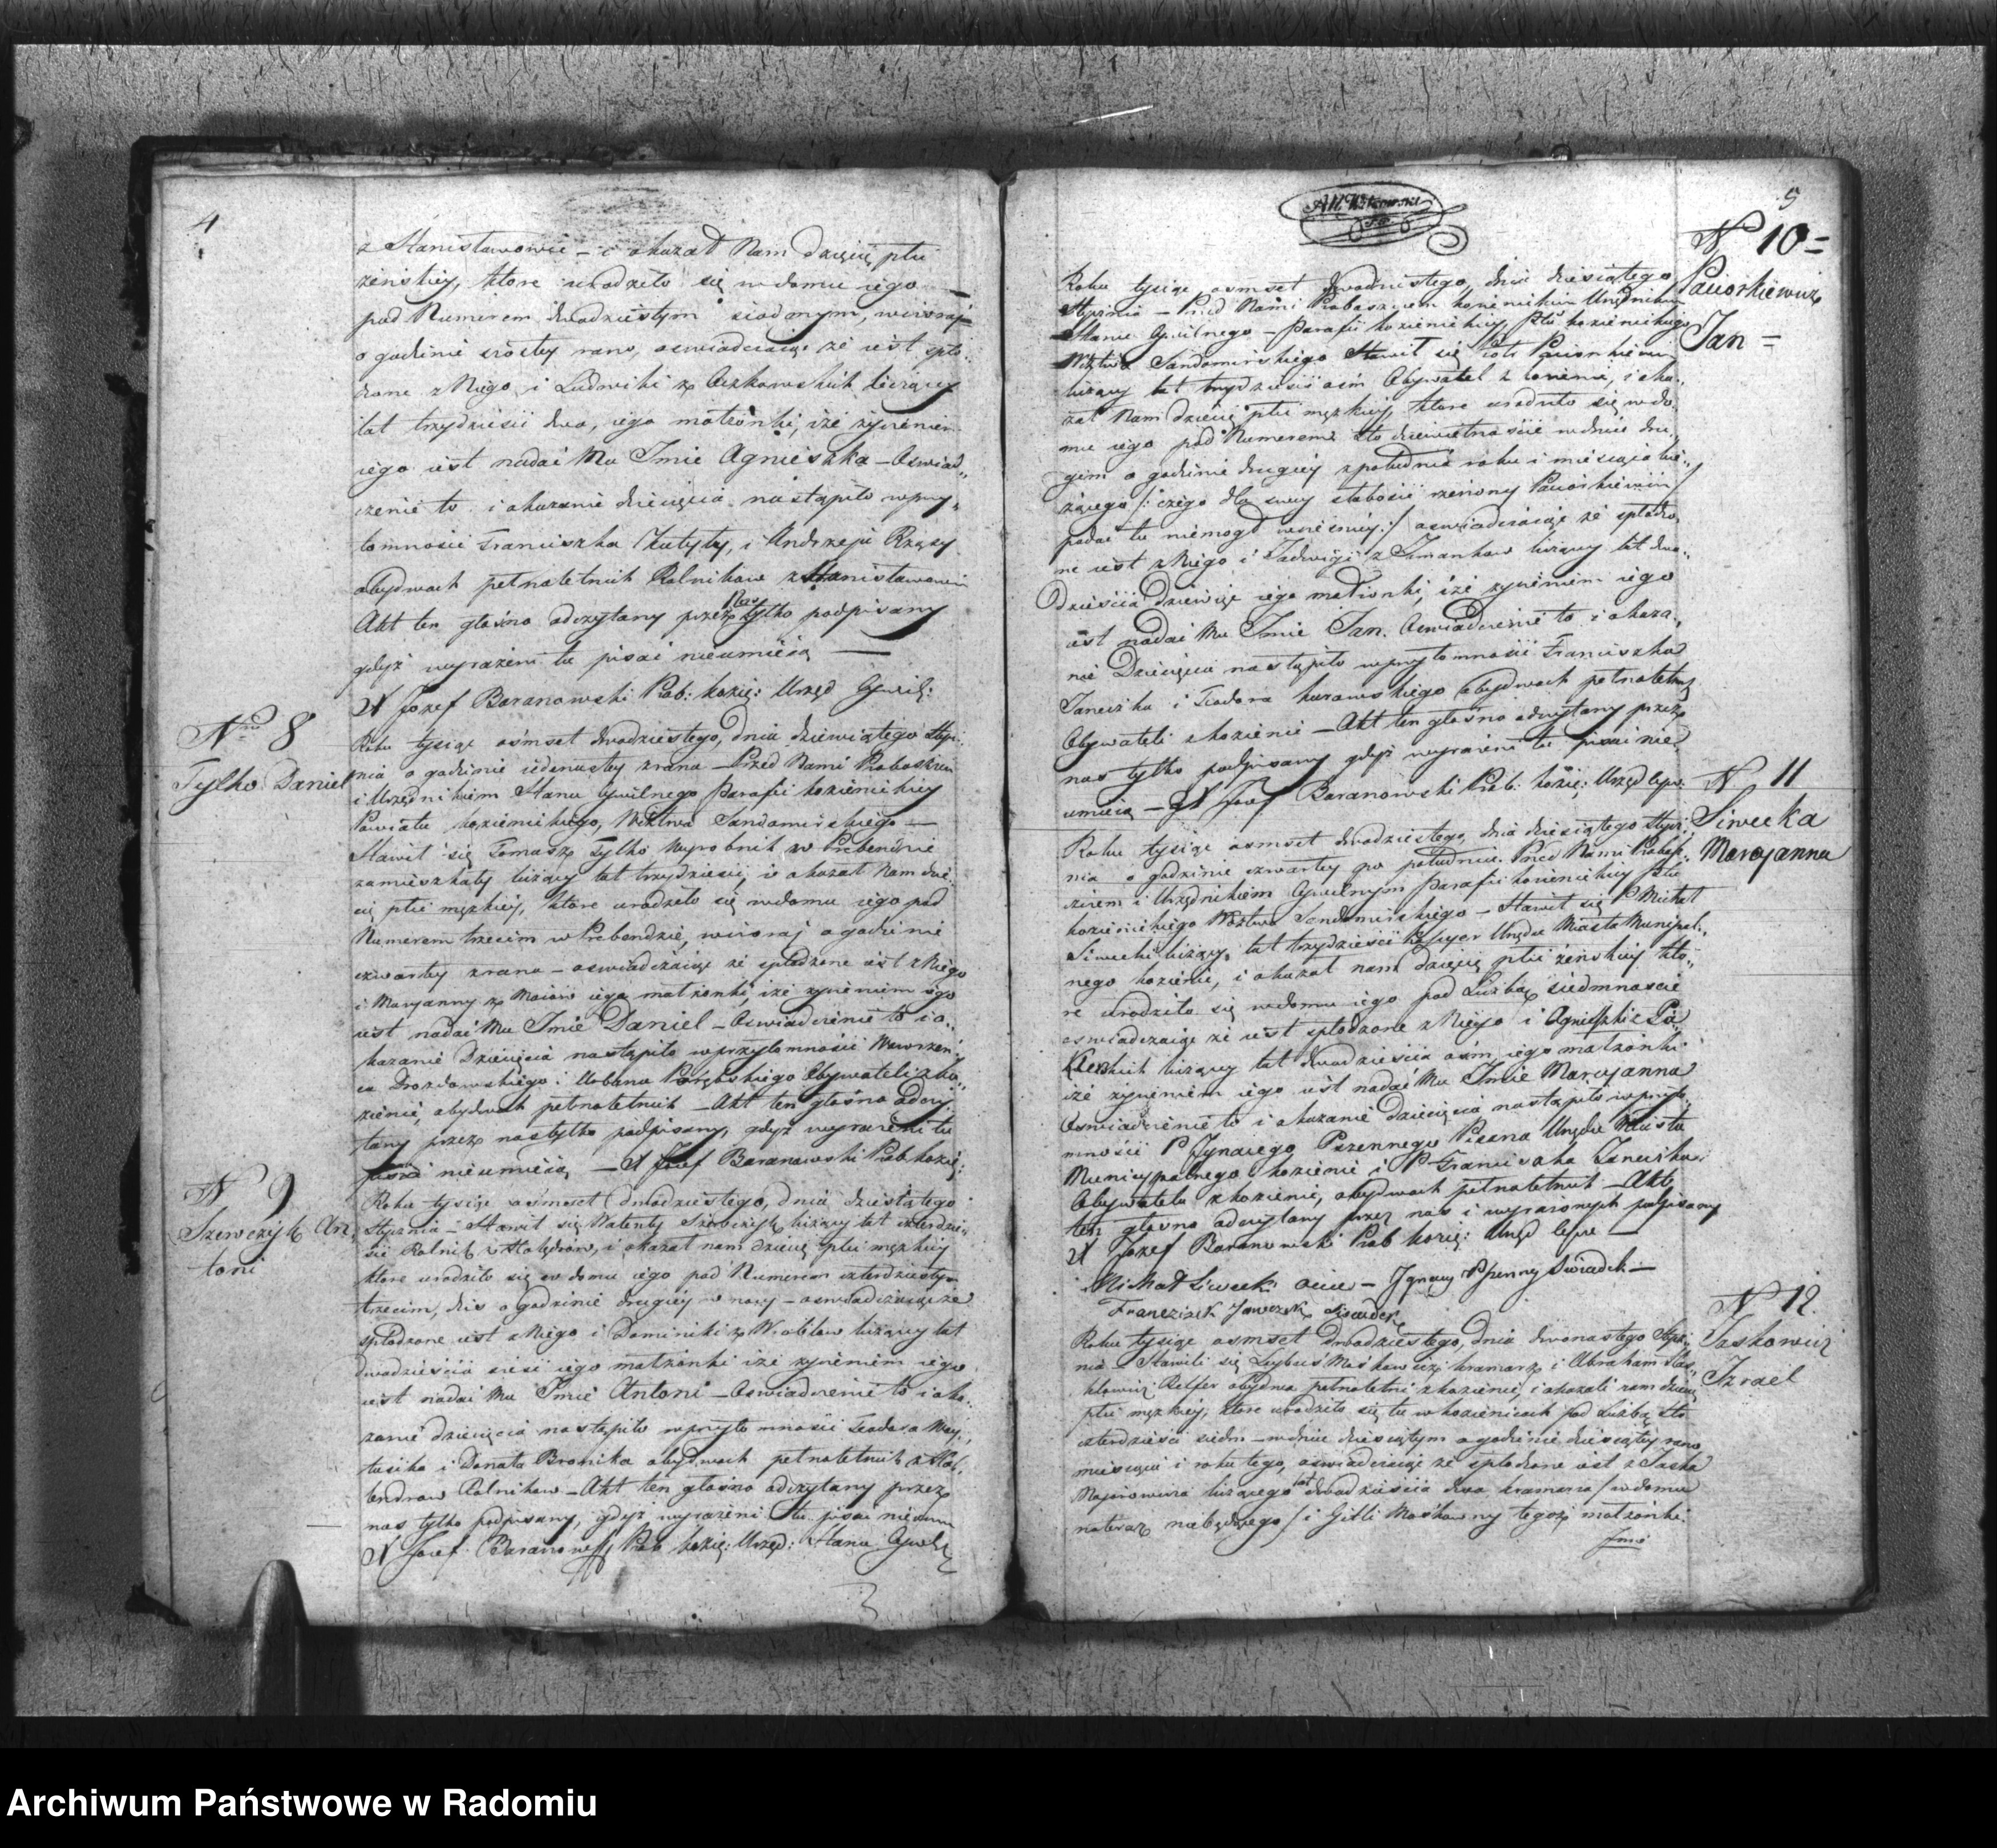 4
z Stanisławowie – i okazał Nam dziecię płci
żeńskiey, które urodziło się w domu iego –
pod Numerem dwudziestym siodmym, wczoraj
o godzinie szostey rano, oswiadczaiąc że iest spło:
dzone z Niego i Ludwiki z licząccy
lat trzydzieści dwa, iego małżonki, iże życzeniem
iego iest nadać Mu Imie Agnieszka – Oswiad„
czenie to i okazanie dziecięcia nastąpiło w przy„
tomności Franciszka i Andrzeja Rząsy
obydwoch pełnoletnich Rolnikow z Stanisławowa
Akt ten głośno odczytany przez Nas tylko podpisany
gdyż wyrażeni tu pisać nieumieią —
X Jozef Baranowski Prob: kozię: Urzęd Cywil:
Nro 8
Tylko Daniel
Roku tysiąc osmset dwudziestego, dnia dziewiątego Stycz:
nia o godzinie iedenastey zrana – Przed Nami Proboszczem
i Urzędnikiem Stanu Cywilnego Parafii kozienickiey
Powiatu kozienickiego, Wdztwa Sandomirskiego —
Stawił się Tomasz Tylko Wyrobnik w Prebendzie
zamieszkały liczący lat trzydzieści, i okazał Nam dzie:
cię płci męzkiey, które urodziło się w domu iego pod
Numerem trzecim w Prebendzie, wczoraj o godzinie
czwartey zrana – oswiadczaiąc że spłodzone iest z Niego
i Maryanny z Maiow iego małżonki, iże życzeniem iego
iest nadać Mu Imie Daniel – Oswiadczenie to i o„
kazanie Dziecięcia nastąpiło w przytomności Wawrzeń
ca Drozdowskiego i Urbana Porębskiego Obywateli z ko„
zienic, obydwoch pełnoletnich – Akt ten głośno odczy
tany przez nas tylko podpisany, gdyż wyrażeni tu
pisać nieumieią – X Jozef Baranowski Prob kozię:
N 9
Szewczyk An„
toni
Roku tysiąc osmset dwudziestego, dnia dziesiątego
Stycznia – Stawił się Walenty Szewczyk liczący lat czterdzie„
ści Rolnik z Holędrow, i okazał nam dziecię płci męzkiey
które urodziło się w domu iego pod Numerem czterdziestym
trzecim, dziś o godzinie drugiey w nocy – oswiadczaiąc że
spłodzone iest z Niego i Dominiki z Wroblow liczącey lat
dwadzieścia sześć iego małżonki iże życzeniem iego
iest nadać Mu Imie Antoni – Oswiadczenie to i oka„
zanie dziecięcia nastąpiło w przytomności Teodora May„
tusika i Donata Bronika obydwoch pełnoletnich z Hol„
lendrow Rolnikow – Akt ten głośno odczytany przez
nas tylko podpisany, gdyż wyrażeni tu pisać nieum
X Jozef Baranowski Prob kozię: Urzęd: Stanu Cywil
3
5
N 10 =
Paciorkiewicz
Jan =
Roku tysiąc osmset dwudziestego, dnia dziesiątego
Stycznia – Przed Nami Proboszczem kozienickim Urzędnikiem
Stanu Cywilnego – Parafii kozienickiey, Pttu kozienickiego
Wdztwa Sandomirskiego Stawił się Piotr Paciorkiewicz
liczący lat trzydzieści ośm Obywatel z kozienic, i oka„
zał Nam dziecię płci męzkiey, które urodziło się w do„
mu iego pod Numerem sto dziewietnaście w dniu dru„
gim o godzinie drugiey z południa roku i miesiąca bie„
żącego /: czego dla swey słabości rzeczony Paciorkiewicz
podać tu niemogł wcześniey :/ oswiadczaiąc że spłodzo„
ne iest z Niego i Jadwigi z liczącey lat dwa„
dzieścia dziewięć iego małżonki, iże życzeniem iego
iest nadać Mu Imie Jan. Oswiadczenie to i okaza„
nie Dziecięcia nastąpiło w przytomności Franciszka
Janeczka i Teodora kurowskiego obydwoch pełnoletnich
Obywateli z kozienic – Akt ten głośno odczytany przez
nas tylko podpisany gdyż wyrażeni tu pisać nie
umieią – X Jozef Baranowski Prob: kozię: Urzęd Cyw:
N 11
Siwecka
Maryanna
Roku tysiąc osmset dwudziestego, dnia dziesiątego Stycz„
nia o godzinie czwartey po południu. Przed Nami Probosz„
czem i Urzędnikiem Cywilnym Parafii kozienickiey Pttu
kozienickiego Wdztwa Sandomirskiego – Stawił się P Michał
Siwecki liczący lat trzydzieści Urzędu Miasta Municypal„
nego kozienic, i okazał nam dziecię płci żeńskiey któ„
re urodziło się w domu iego pod Liczbą siedmnaście
oswiadczaiąc że iest spłodzone z Niego i Agnieszki z
liczącey lat dwadzieścia ośm iego małżonki
iże życzeniem iego iest nadać Mu Imie Maryanna
Oswiadczenie to i okazanie dziecięcia nastąpiło w przyto„
mności P Jgnacego Pszennego Pisarza Urzędu Miasta
Municypalnego kozienic i P Franciszka Janeczka
Obywatela z kozienic, obydwoch pełnoletnich – Akt
ten głośno odczytany przez nas i wyrażonych podpisany
X Jozef Baranowski Prob kozię: Urzęd Cyw —
Michał Siwecki ociec – Jgnacy Pszenny Swiadek —
Franciszek Janeczek Swiadek
N 12.
Jaskowicz
Izrael
Roku tysiąc osmset dwudziestego, dnia dwunastego Stycz„
nia Stawili się Leybus Moskowicz kramarz i Abraham
Belfer obydwa pełnoletni z kozienic, i okazali nam dziecię
płci męzkiey, które urodziło się tu w kozienicach pod Liczbą sto
czterdzieści siedm – w dniu dziesiątym o godzinie dziesiątey rano
miesiąca i roku tego, oswiadczaiąc że spłodzone iest z Jaska
Majorowicza liczącego lat dwadzieścia dwa kramarza / w domu
na teraz niebędącego / i Gitli Moskowny tegoż małżonki
Imie
Archiwum Państwowe w Radomiu